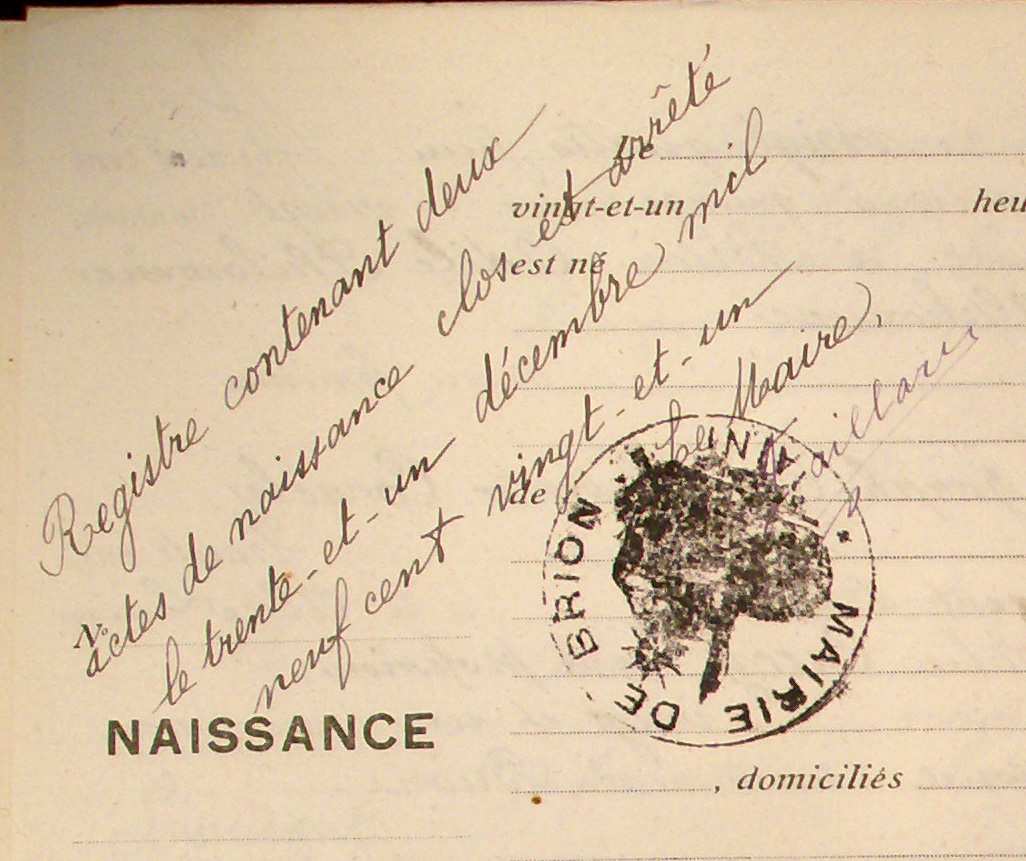 Registre contenant deux
actes de naissance clos et arrêté
le trente-et-un décembre mil
neuf cent vingt-et-un
Le Maire,
Le
vingt-et-un heu
est né
de
N°
NAISSANCE
, domiciliés
MAIRIE DE BRION